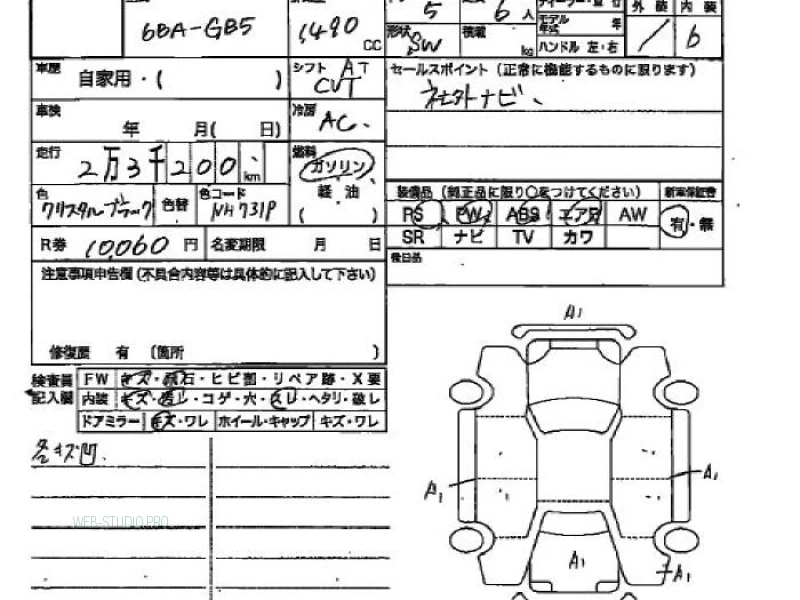 6BA-GB5 1,490 CC
5 6人
形状 SW 積載 kg
モデル年式 年
ハンドル 左・右
外装 内装
/ b
車歴 自家用・( )
シフト AT CVT
セールスポイント (正常に機能するものに限ります)
社外ナビ、
車検 年 月( 日)
冷房 AC.
走行 2万3千200 km
燃料 ガソリン
軽・油
( )
色 クリスタルブラック 色替 色コード NH731P
装備品 (純正品に限り○をつけてください) 新車保証書
PS PW ABS エアB AW 有・無
SR ナビ TV カワ
R券 10,060 円 名変期限 月 日
後日品
注意事項申告欄 (不具合内容等は具体的に記入して下さい)
修復歴 有 (箇所 )
検査員記入欄
FW キズ・飛石・ヒビ割・リペア跡・X要
内装 キズ・汚レ・コゲ・穴・スレ・ヘタリ・破レ
ドアミラー キズ・ワレ ホイール・キャップ キズ・ワレ
各キズ凹
WEB-STUDIO.PRO
A1
A1
A1
A1
A1